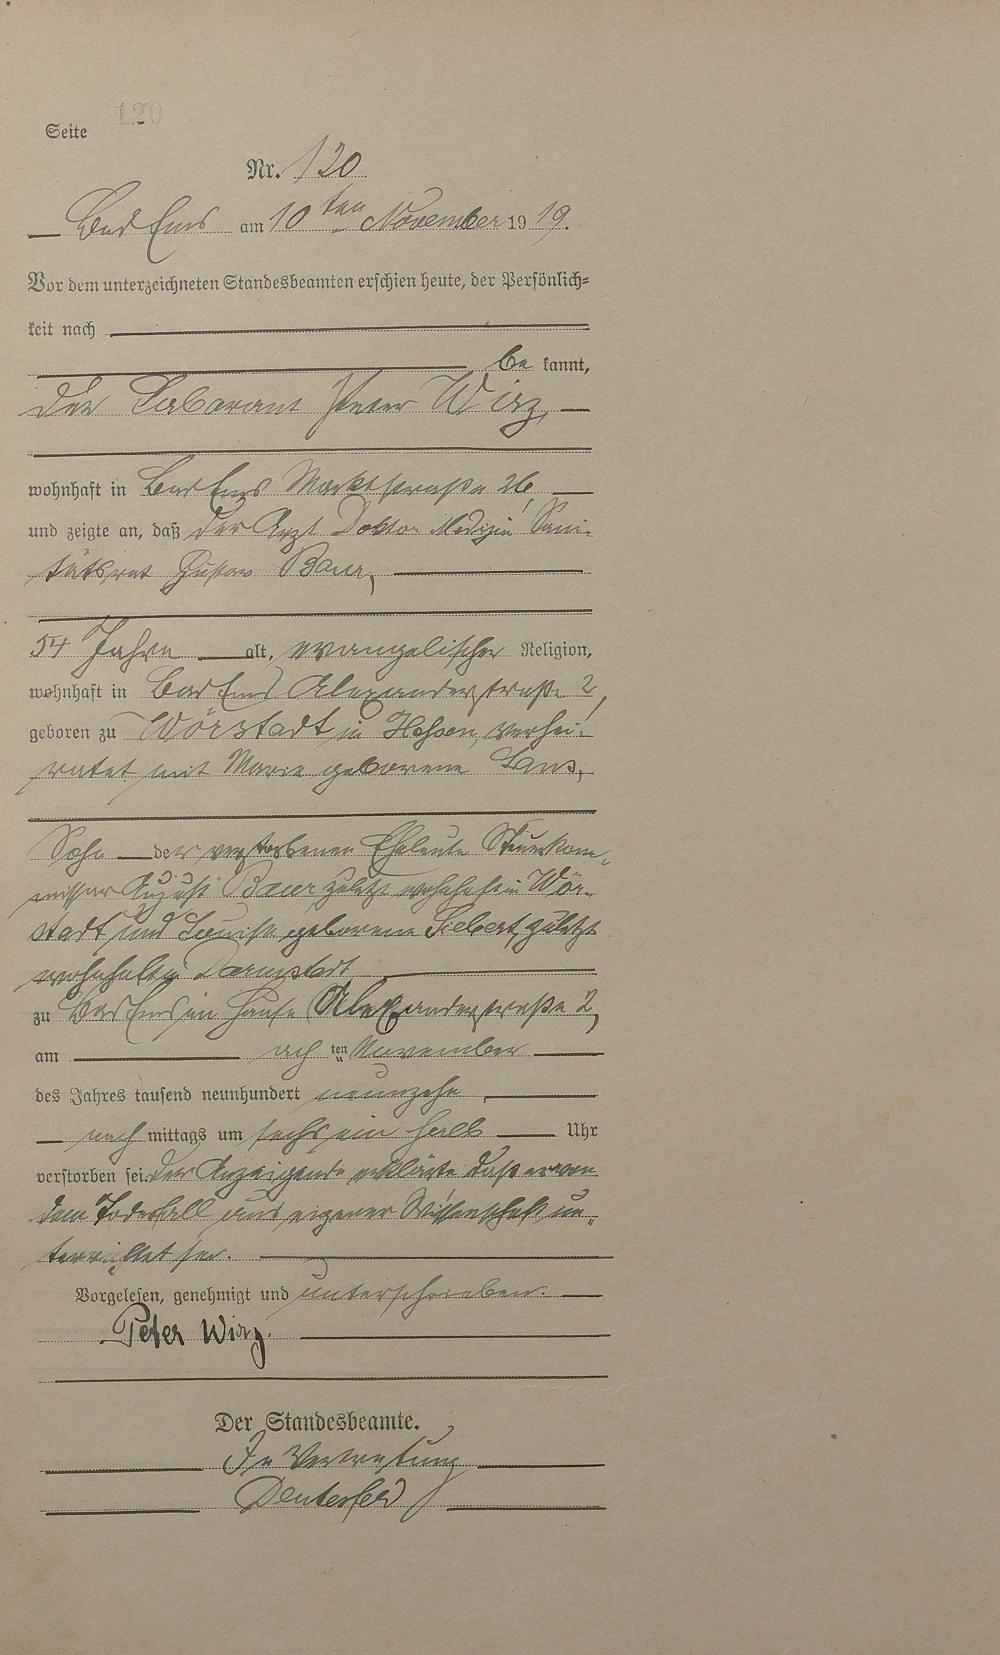 Seite 120
Nr. 120
Bad Ems am 10ten November 1919.
Vor dem unterzeichneten Standesbeamten erschien heute, der Persönlich=
keit nach
be kannt,
der Laborant Peter Wirz,
wohnhaft in Bad Ems Marktstraße 26,
und zeigte an, daß der Arzt Doktor Medizin Sani-
tätsrat Gustav Baur,
54 Jahre alt, evangelischer Religion,
wohnhaft in Bad Ems Alexanderstraße 2,
geboren zu Wörstadt in Hessen, verhei-
ratet mit Marie geborene
Sohn der verstorbenen Eheleute Steuerkom-
missar August Baur zuletzt wohnhaft in Wör-
stadt und Louise geborene Siebert, zuletzt
wohnhaft in Darmstadt
zu Bad Ems im Hause Alexanderstraße 2,
am ach ten November
des Jahres tausend neunhundert neunzehn
nach mittags um sechs ein halb Uhr
verstorben sei. Der Anzeigende erklärte daß er von
dem Todesfall aus eigener Wissenschaft un-
terrichtet sei.
Vorgelesen, genehmigt und unterschrieben.
Peter Wirz.
Der Standesbeamte.
In Vertretung